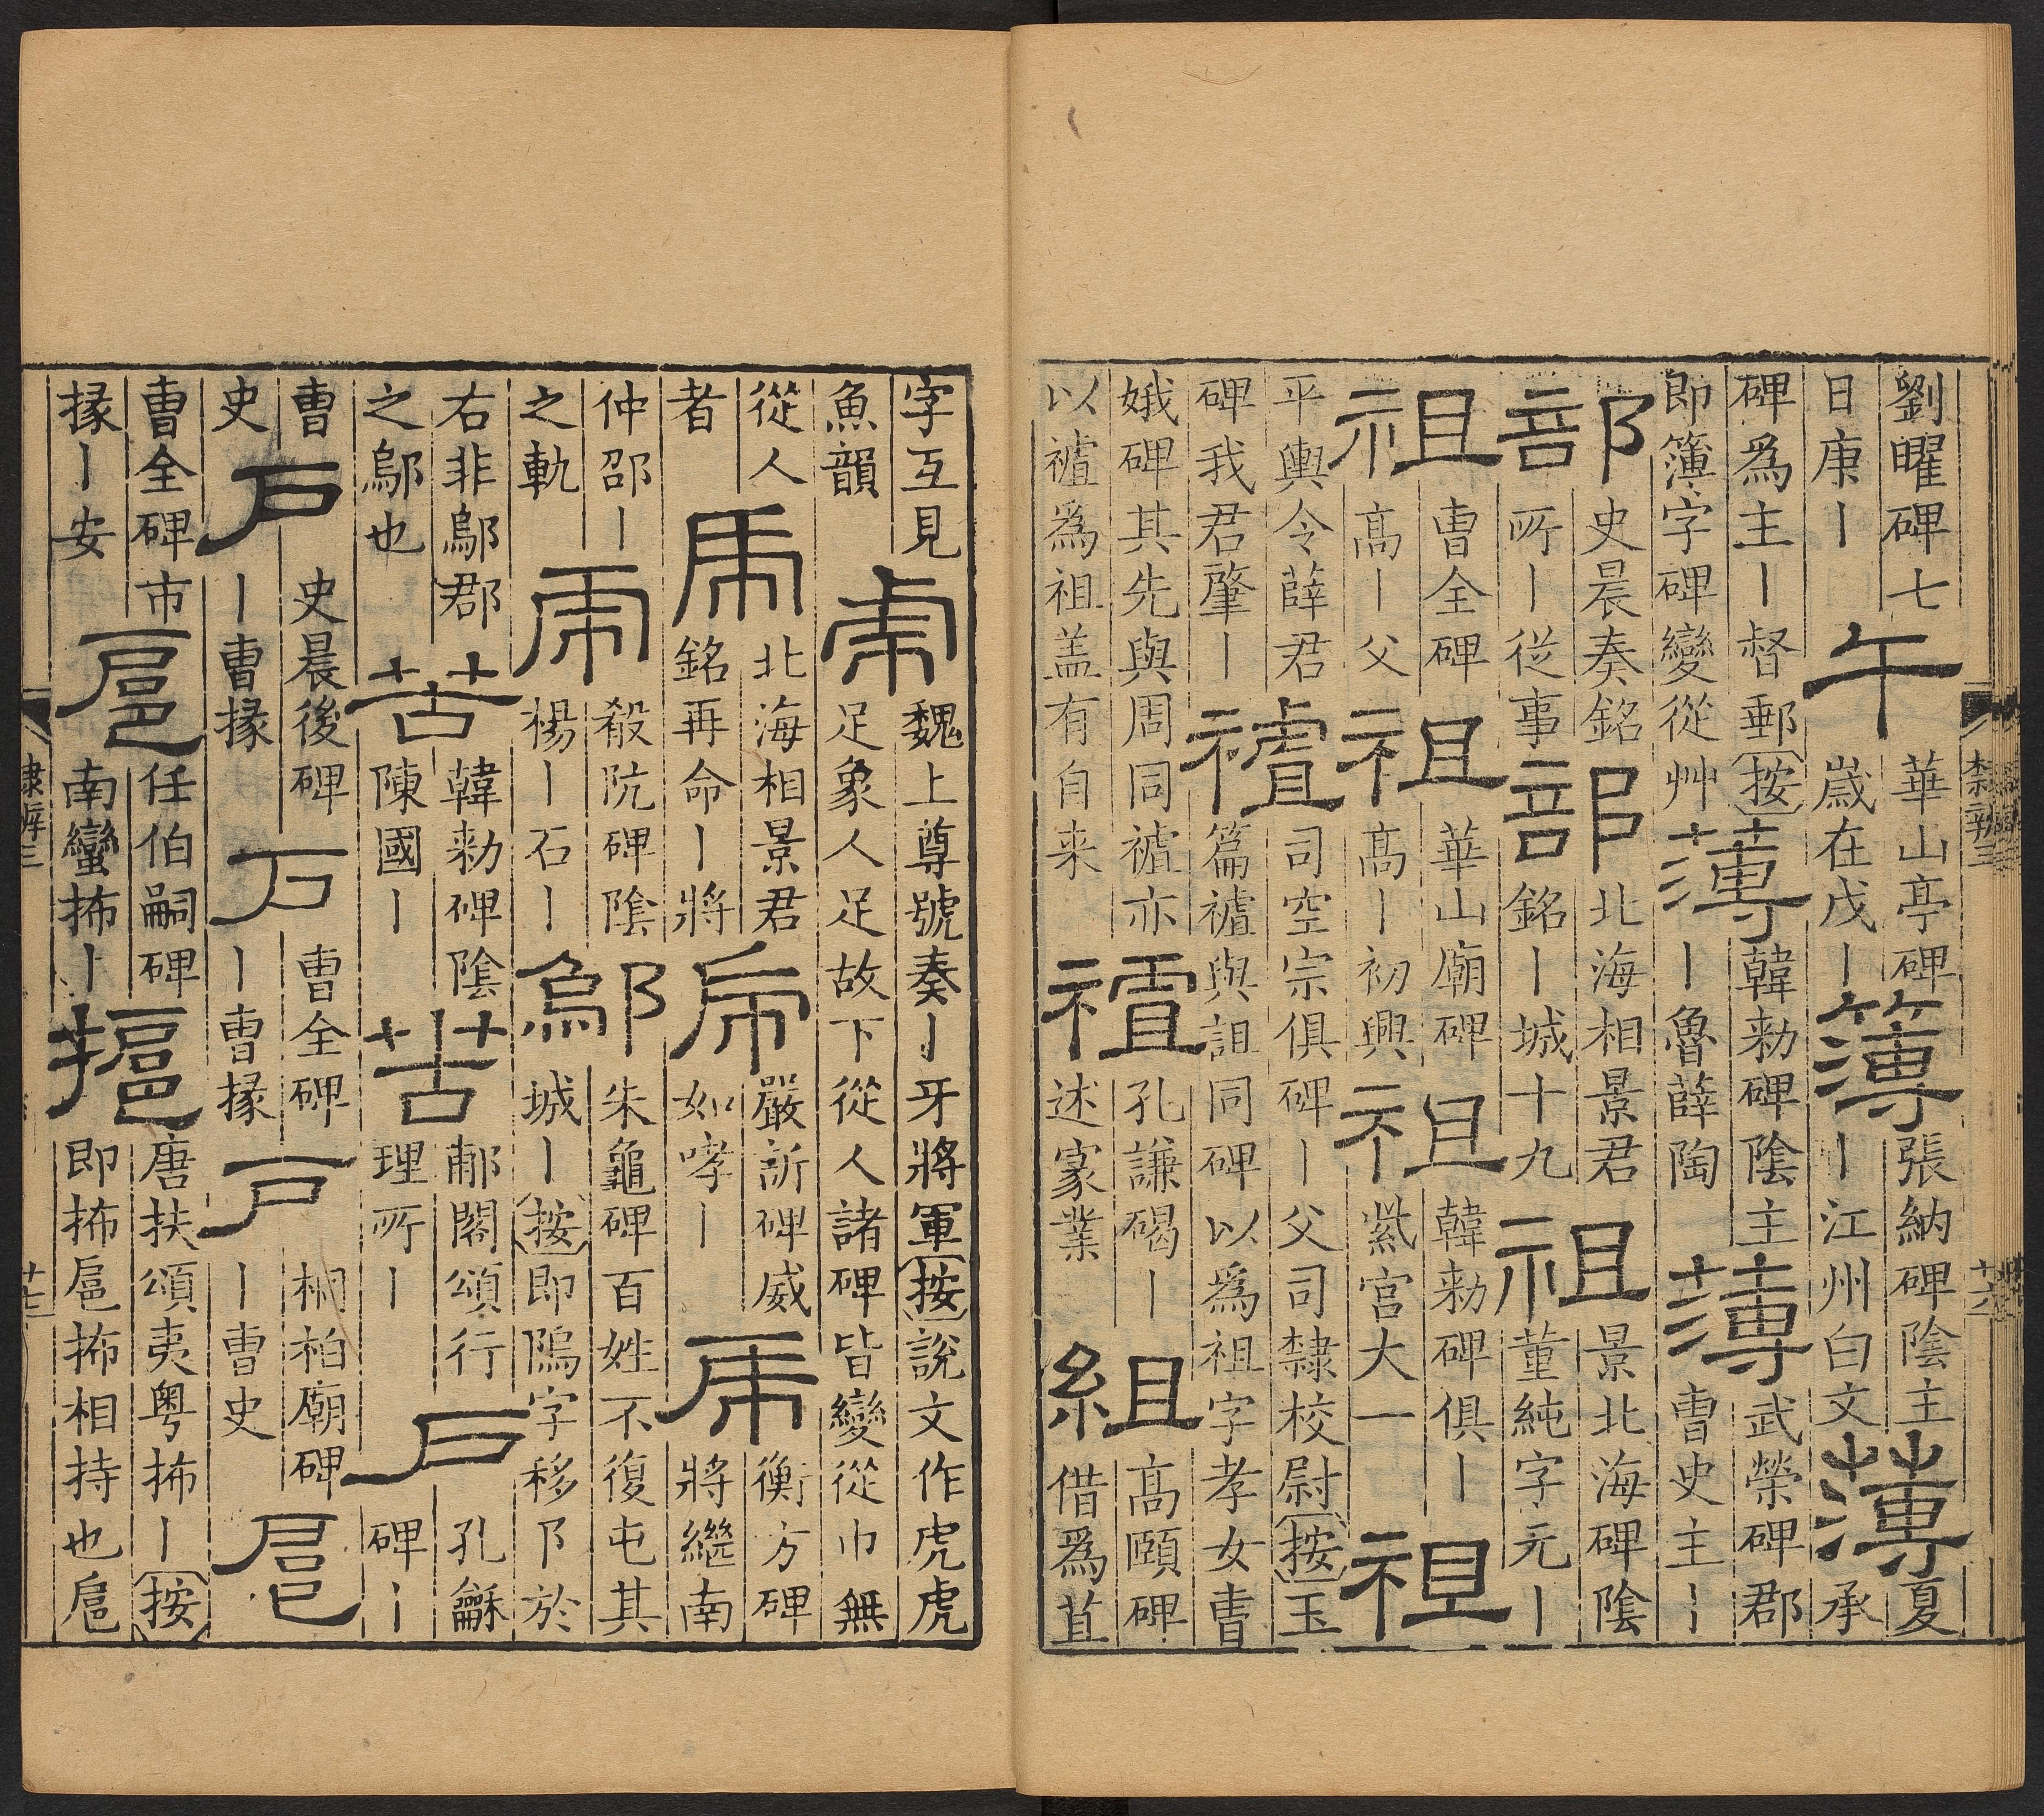 劉曜碑七日庚丨午華山亭碑歲在戊丨簿張納碑陰主丨江州白文薄夏承
碑為主丨督郵按即簿字碑變從艸薄韓勑碑陰主丨魯薛陶薄武榮碑郡曹史主丨
部史晨奏銘所丨從事部北海相景君銘丨城十九祖景北海碑陰董純字元丨
祖曹全碑高丨父祖華山廟碑高丨初興祖韓勑碑俱丨紫宮大一祖
平輿令薛君碑我君肇丨䄟司空宗俱碑丨父司隸校尉按玉篇䄟與詛同碑以為祖字孝女曹
娥碑其先與周同䄟亦以䄟為祖盖有自来䄟孔謙碣丨述家業組高頤碑借為苴
隸辨三 十六
字互見魚韻虎魏上尊號奏丨牙將軍按說文作虎虎足象人足故下從人諸碑皆變從巾無
從人者虎北海相景君銘再命丨將虎嚴訢碑威如哮丨虎衡方碑將繼南
仲邵丨之軌虎殽阬碑陰楊丨石丨鄔朱龜碑百姓不復屯其城丨按即隖字移阝於
右非鄔郡之鄔也苦韓勑碑陰陳國丨苦郙閣頌行理所丨戶孔龢碑丨
曹史戶史晨後碑丨曹掾戶曹全碑丨曹掾戶桐柏廟碑丨曹史扈
曹全碑市掾丨安扈任伯嗣碑南蠻抪丨唐扶頌夷粤抪丨按即抪扈抪相持也扈
隸辨三